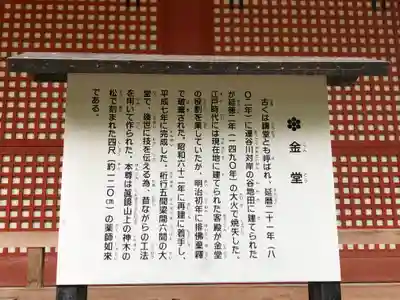 金堂
古くは講堂とも呼ばれ、延暦二十一年(八
〇二年)に達谷川対岸の谷地田に建てられた
が延徳二年(一四九〇年)の大火で焼失した。
江戸時代には現在地に建てられた客殿が金堂
の役割を果していたが、明治初年に排佛棄釋
で破棄された。昭和六十二年に再建に着手し、
平成七年に完成した。桁行五間梁間六間の大
堂で、後世に技を伝える為、昔ながらの工法
を用いて作られた。本尊は眞鏡山上の神木の
松で刻まれた四尺(約一二〇㎝)の薬師如來
である。